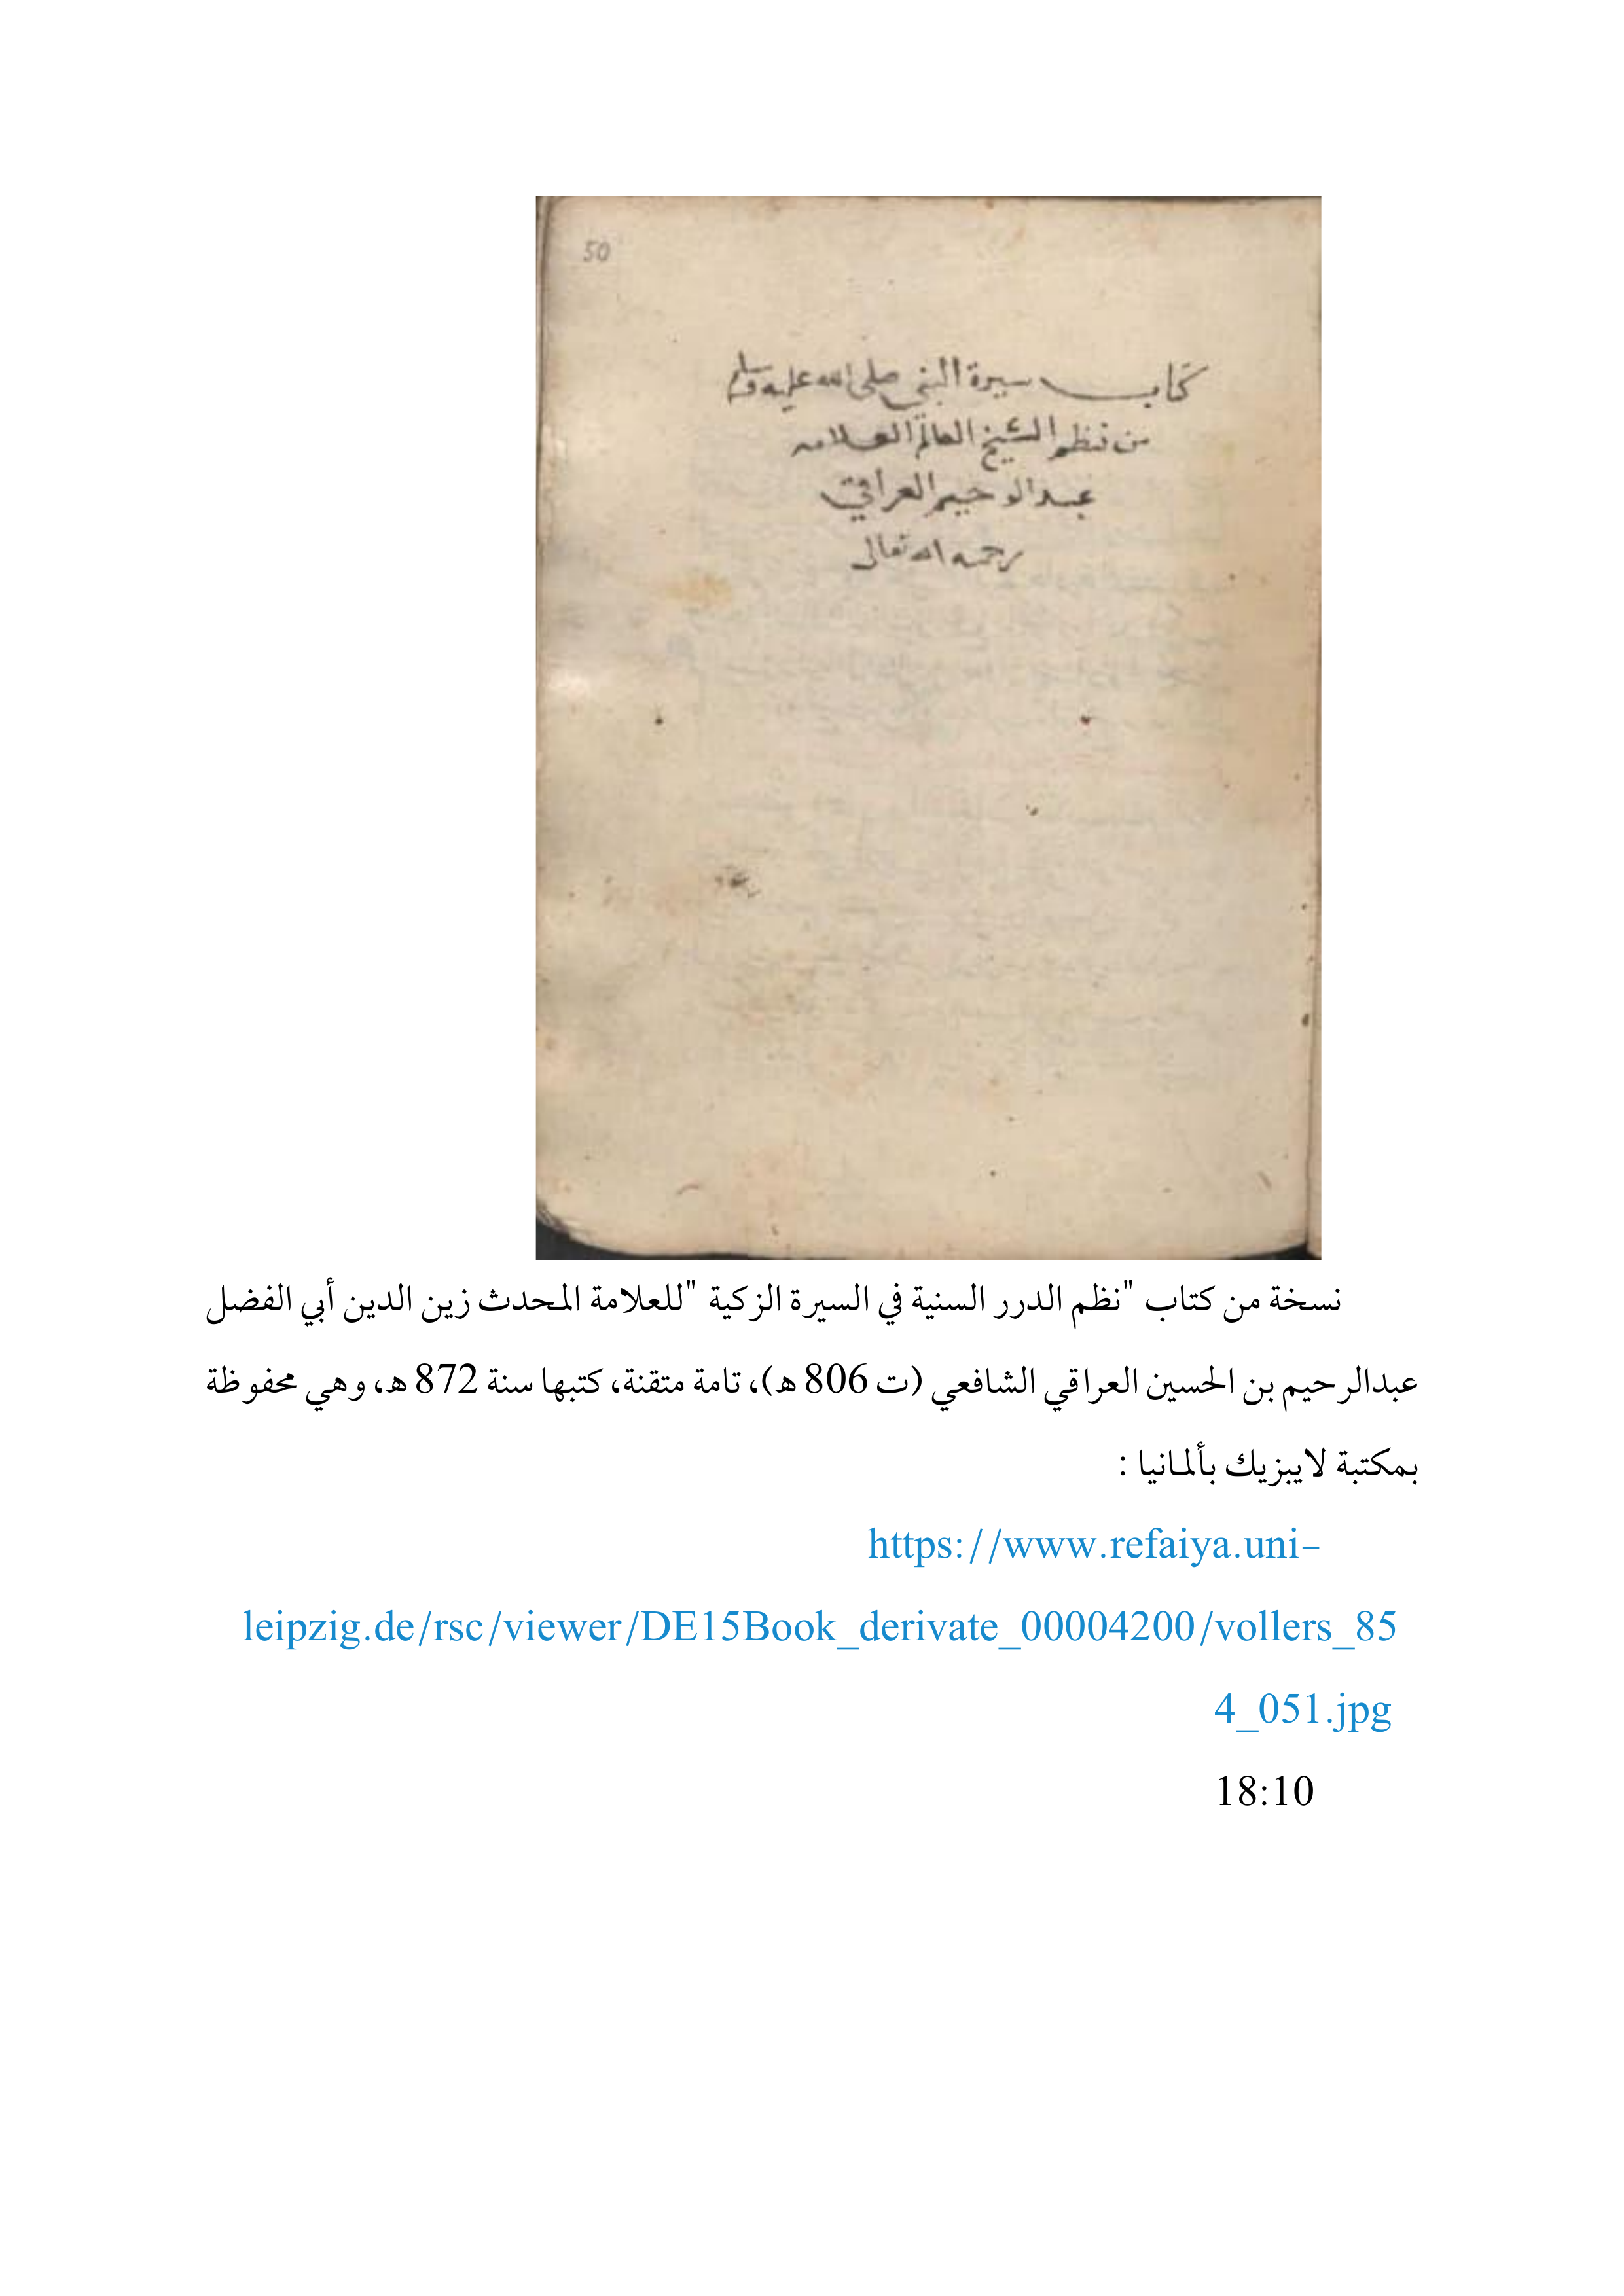 50
كتاب سيرة النبي صلى الله عليه وسلم
من نظم الشيخ العالم العلامه
عبد الرحيم العراقي
رحمه الله تعالى
نسخة من كتاب "نظم الدرر السنية في السيرة الزكية "للعلامة المحدث زين الدين أبي الفضل
عبدالرحيم بن الحسين العراقي الشافعي (ت 806 هـ)، تامة متقنة، كتبها سنة 872 هـ، وهي محفوظة
بمكتبة لايبزيك بألمانيا :
https://www.refaiya.uni-
leipzig.de/rsc/viewer/DE15Book_derivate_00004200/vollers_85
4_051.jpg
18:10